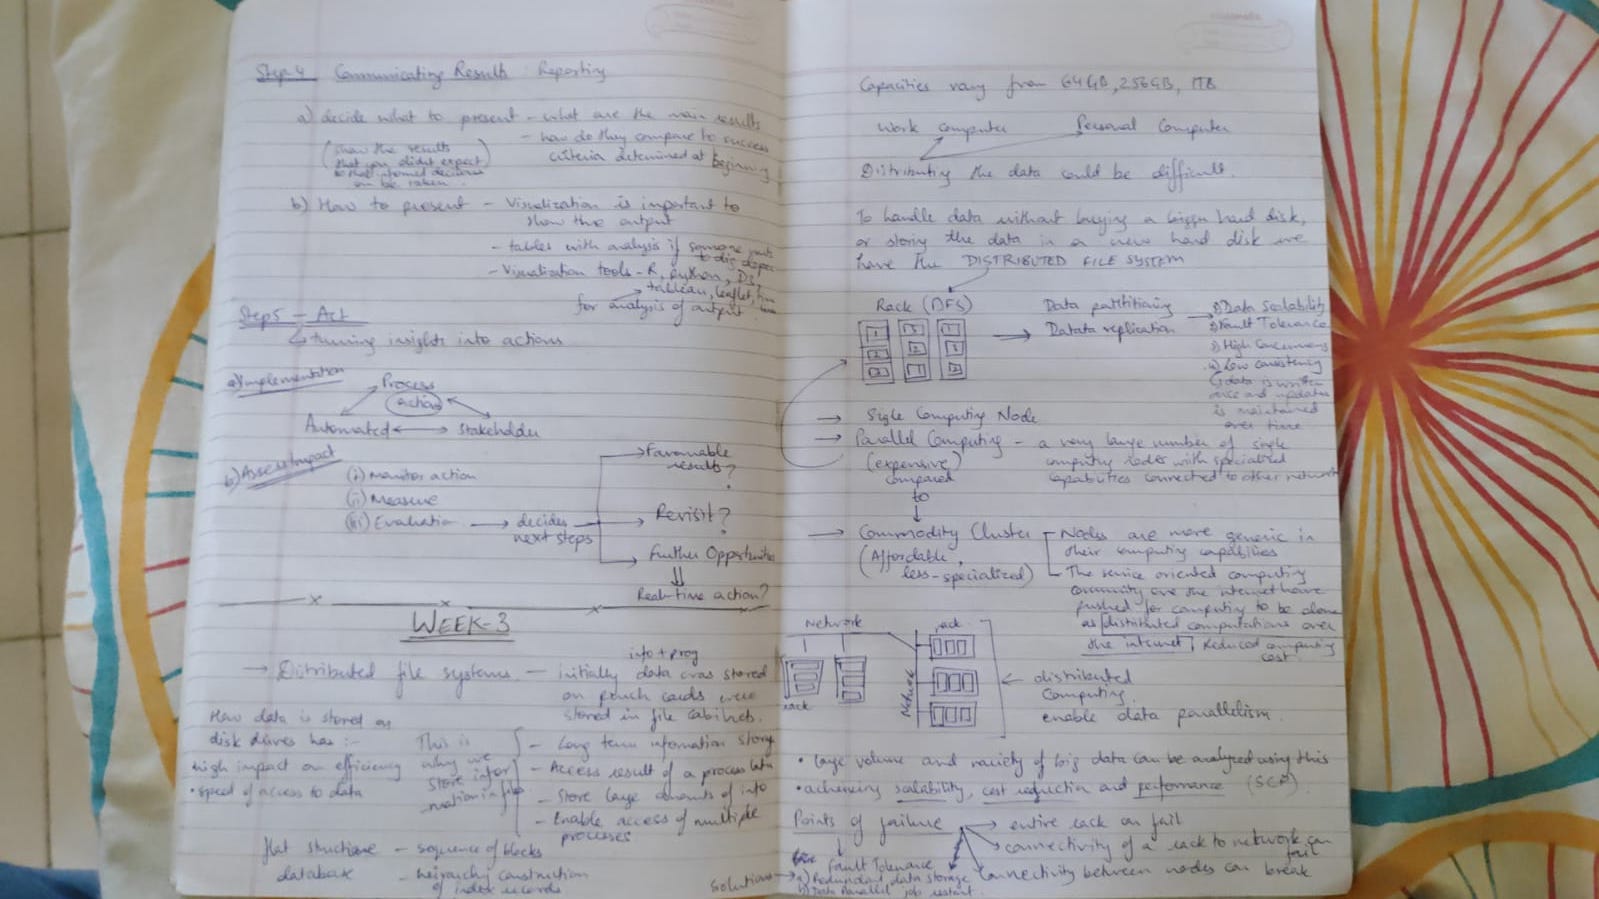 Step-4 Communicating Results : Reporting
a) decide what to present - what are the main results
- how do they compare to success
criteria determined at beginning
(show the results
that you didnt expect)
so that informed decisions
can be taken.
b) How to present - Visualization is important to
show the output
- tables with analysis if someone wants
to dig deeper
- Visualization tools - R, python, D3,
tableau, leaflet,
for analysis of output
Step 5 - Act
turning insights into actions
a) Implementation
Process
action
Automated
Stakeholder
b) Assess Impact
(i) Monitor action
(ii) Measure
(iii) Evaluation
decides
next steps
Favourable
results?
Revisit?
Further Opportunities
Real-time action?
WEEK-3
info + prog
Distributed file systems - initially data was stored
on punch cards were
stored in file cabinets.
How data is stored on
disk drives has :-
high impact on efficiency
• speed of access to data
This is
why we
store infor
mation in file
- Long term information storage
- Access result of a process later
- Store large amounts of info
- Enable access of multiple
processes
flat structure - sequence of blocks
database - heirarchy construction
of index records
Capacities vary from 64GB, 256GB, 1TB
Work computer
Personal Computer
Distributing the data could be difficult.
To handle data without buying a bigger hard disk,
or storing the data in a new hard disk we
have the DISTRIBUTED FILE SYSTEM
Rack (DFS)
1 3
2 2 3
3 1 2
Data partitioning
Datata replication
1) Data Scalability
2) Fault Tolerance
3) High Concurrency
4) Low consistency
data is written
once and updates
is maintained
over time
Single Computing Node
Parallel Computing - a very large number of single
computing nodes with specialized
capabilities connected to other network
(expensive)
compared
to
Commodity Cluster
(Affordable,
less-specialized)
Nodes are more generic in
their computing capabilities
The service oriented computing
community over the internet have
pushed for computing to be done
as distributed computations over
the internet, Reduced computing
cost.
Network
rack
rack
Network
distributed
Computing.
enable data parallelism.
• large volume and variety of big data can be analyzed using this
• achieving scalability, cost reduction and performance (SCP)
Points of failure
entire rack can fail
connectivity of a rack to network can
fail
Connectivity between nodes can break
Fault Tolerance
Solutions
a) Redundant data storage
b) Data Parallel job restart.